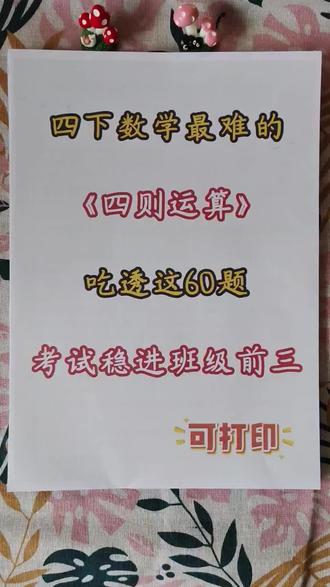 四下数学最难的
《四则运算》
吃透这60题
考试稳进班级前三
可打印